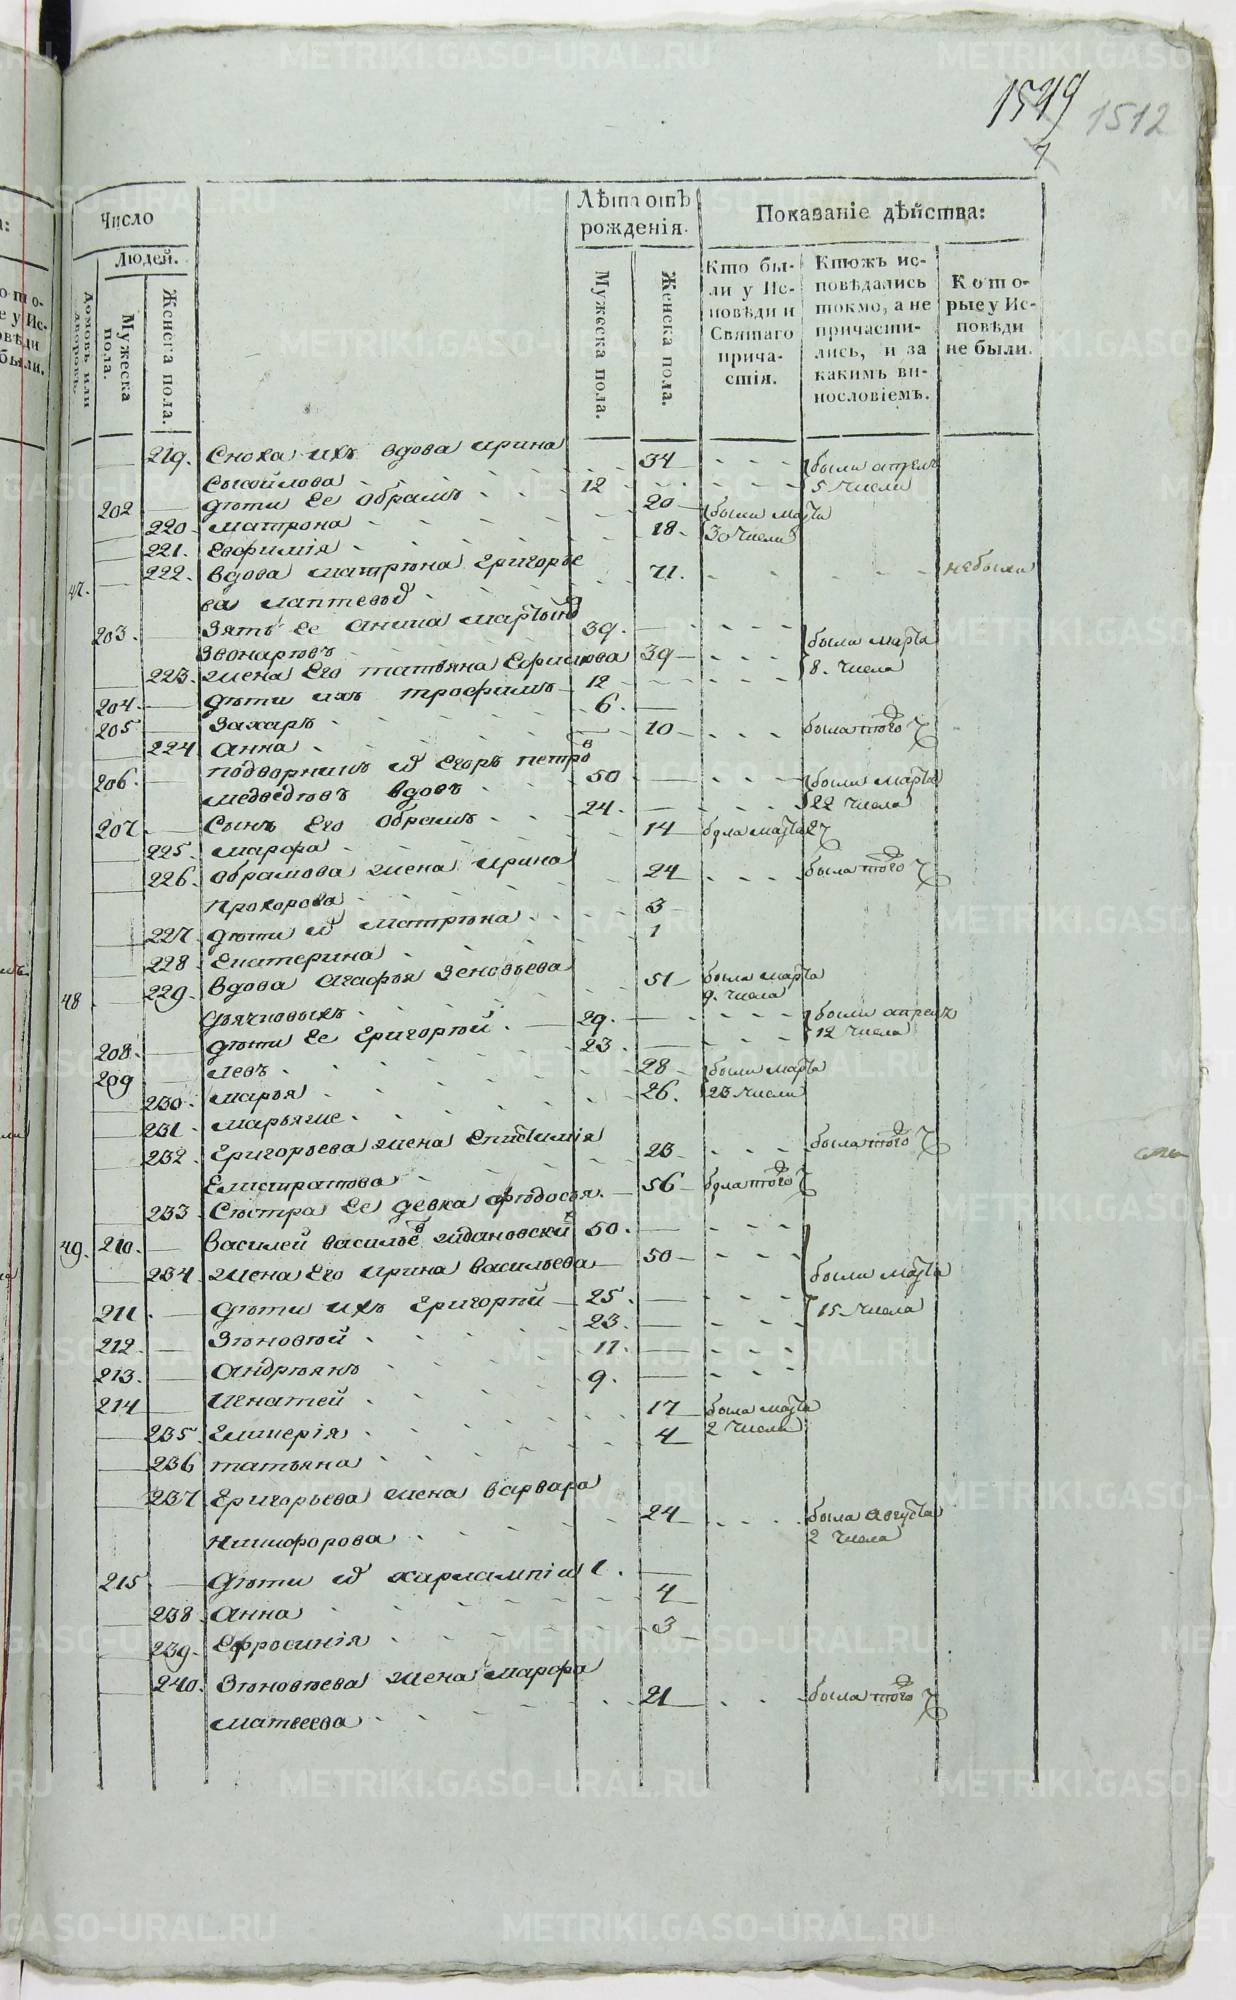 1512
Число
Людей.
домовъ или дворовъ.
Мужеска пола.
Женска пола.
Лѣта отъ рожденія.
Мужеска пола.
Женска пола.
Показаніе дѣйства:
Кто были у Исповѣди и Святаго причастія.
Ктожъ исповѣдались токмо, а не причастились, и за какимъ винословіемъ.
Которые у Исповѣди не были.
219. Сноха ихъ вдова Ирина 34 были апреля
5 числа
202 дѣти Ее Обрамъ 12
220 матрона 20 были марта
221. Евфимія 18. 30 числа
47. 222. вдова матрена Григорье
ва лаптевыхъ 71. небыла
203. Зять Ее
Звонаревъ 39. были марта
223. жена Его татьяна Ефимова 39 8. числа
204 дѣти ихъ трофимъ 12
205 Захаръ 6.
224 Анна 10 была того ч
206 подворникъ Егоръ петров
медведевъ вдовъ 50 были марта
207. Сынъ Его Обрамъ 24. 22 числа
225. марфа 14 была марта 27
226. Обрамова жена Ирина
Прохорова 24 была того ч
227. дѣти матрена 3
228 Екатерина 1
48 229. вдова Агафья Зеновьева
51 была марта
9. числа
208. дѣти Ее Григорей 29. были апреля
12 числа
209 левъ 23
230. марья 28 были марта
231. марьяже 26. 23 числа
232. Григорьева жена Епистимія
Елистратова 23 была того ч
233 Сестра Ее девка федосья. 56 была того ч
49. 210. Василей васильев ждановский 50.
234. жена Его Ирина васильева 50 были марта
211. дѣти ихъ Григорей 25. 15 числа
212. Зеновей 23.
213. Андреянъ 11.
214 Игнатей 9.
235. Гликерія 17 была марта
2 числа
236 татьяна 4
237 Григорьева жена варвара
Никифорова 24 была августа
2 числа
215 дѣти харлампій 1.
238. Анна 4
239. Ефросинія 3
240. Зеновьева жена марфа
матвеева 21 была того ч
METRIKI.GASO-URAL.RU